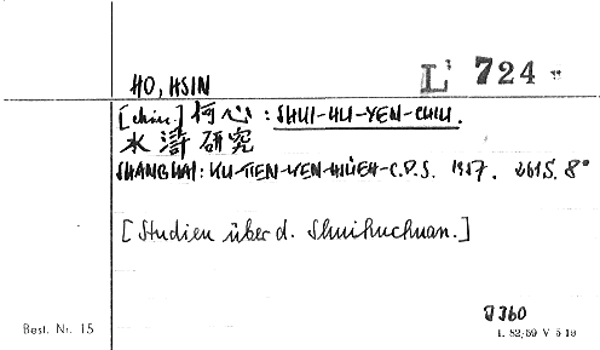 HO, HSIN
L' 724 "
[chin.] 何心: SHUI-HU-YEN-CHIU.
水滸研究
SHANGHAI: KU-TIEN-WEN-HSÜEH-C.P.S. 1957. 261S. 8°
[Studien über d. Shuihuchuan.]
J 360
Best. Nr. 15
L 82/59 V 5 19